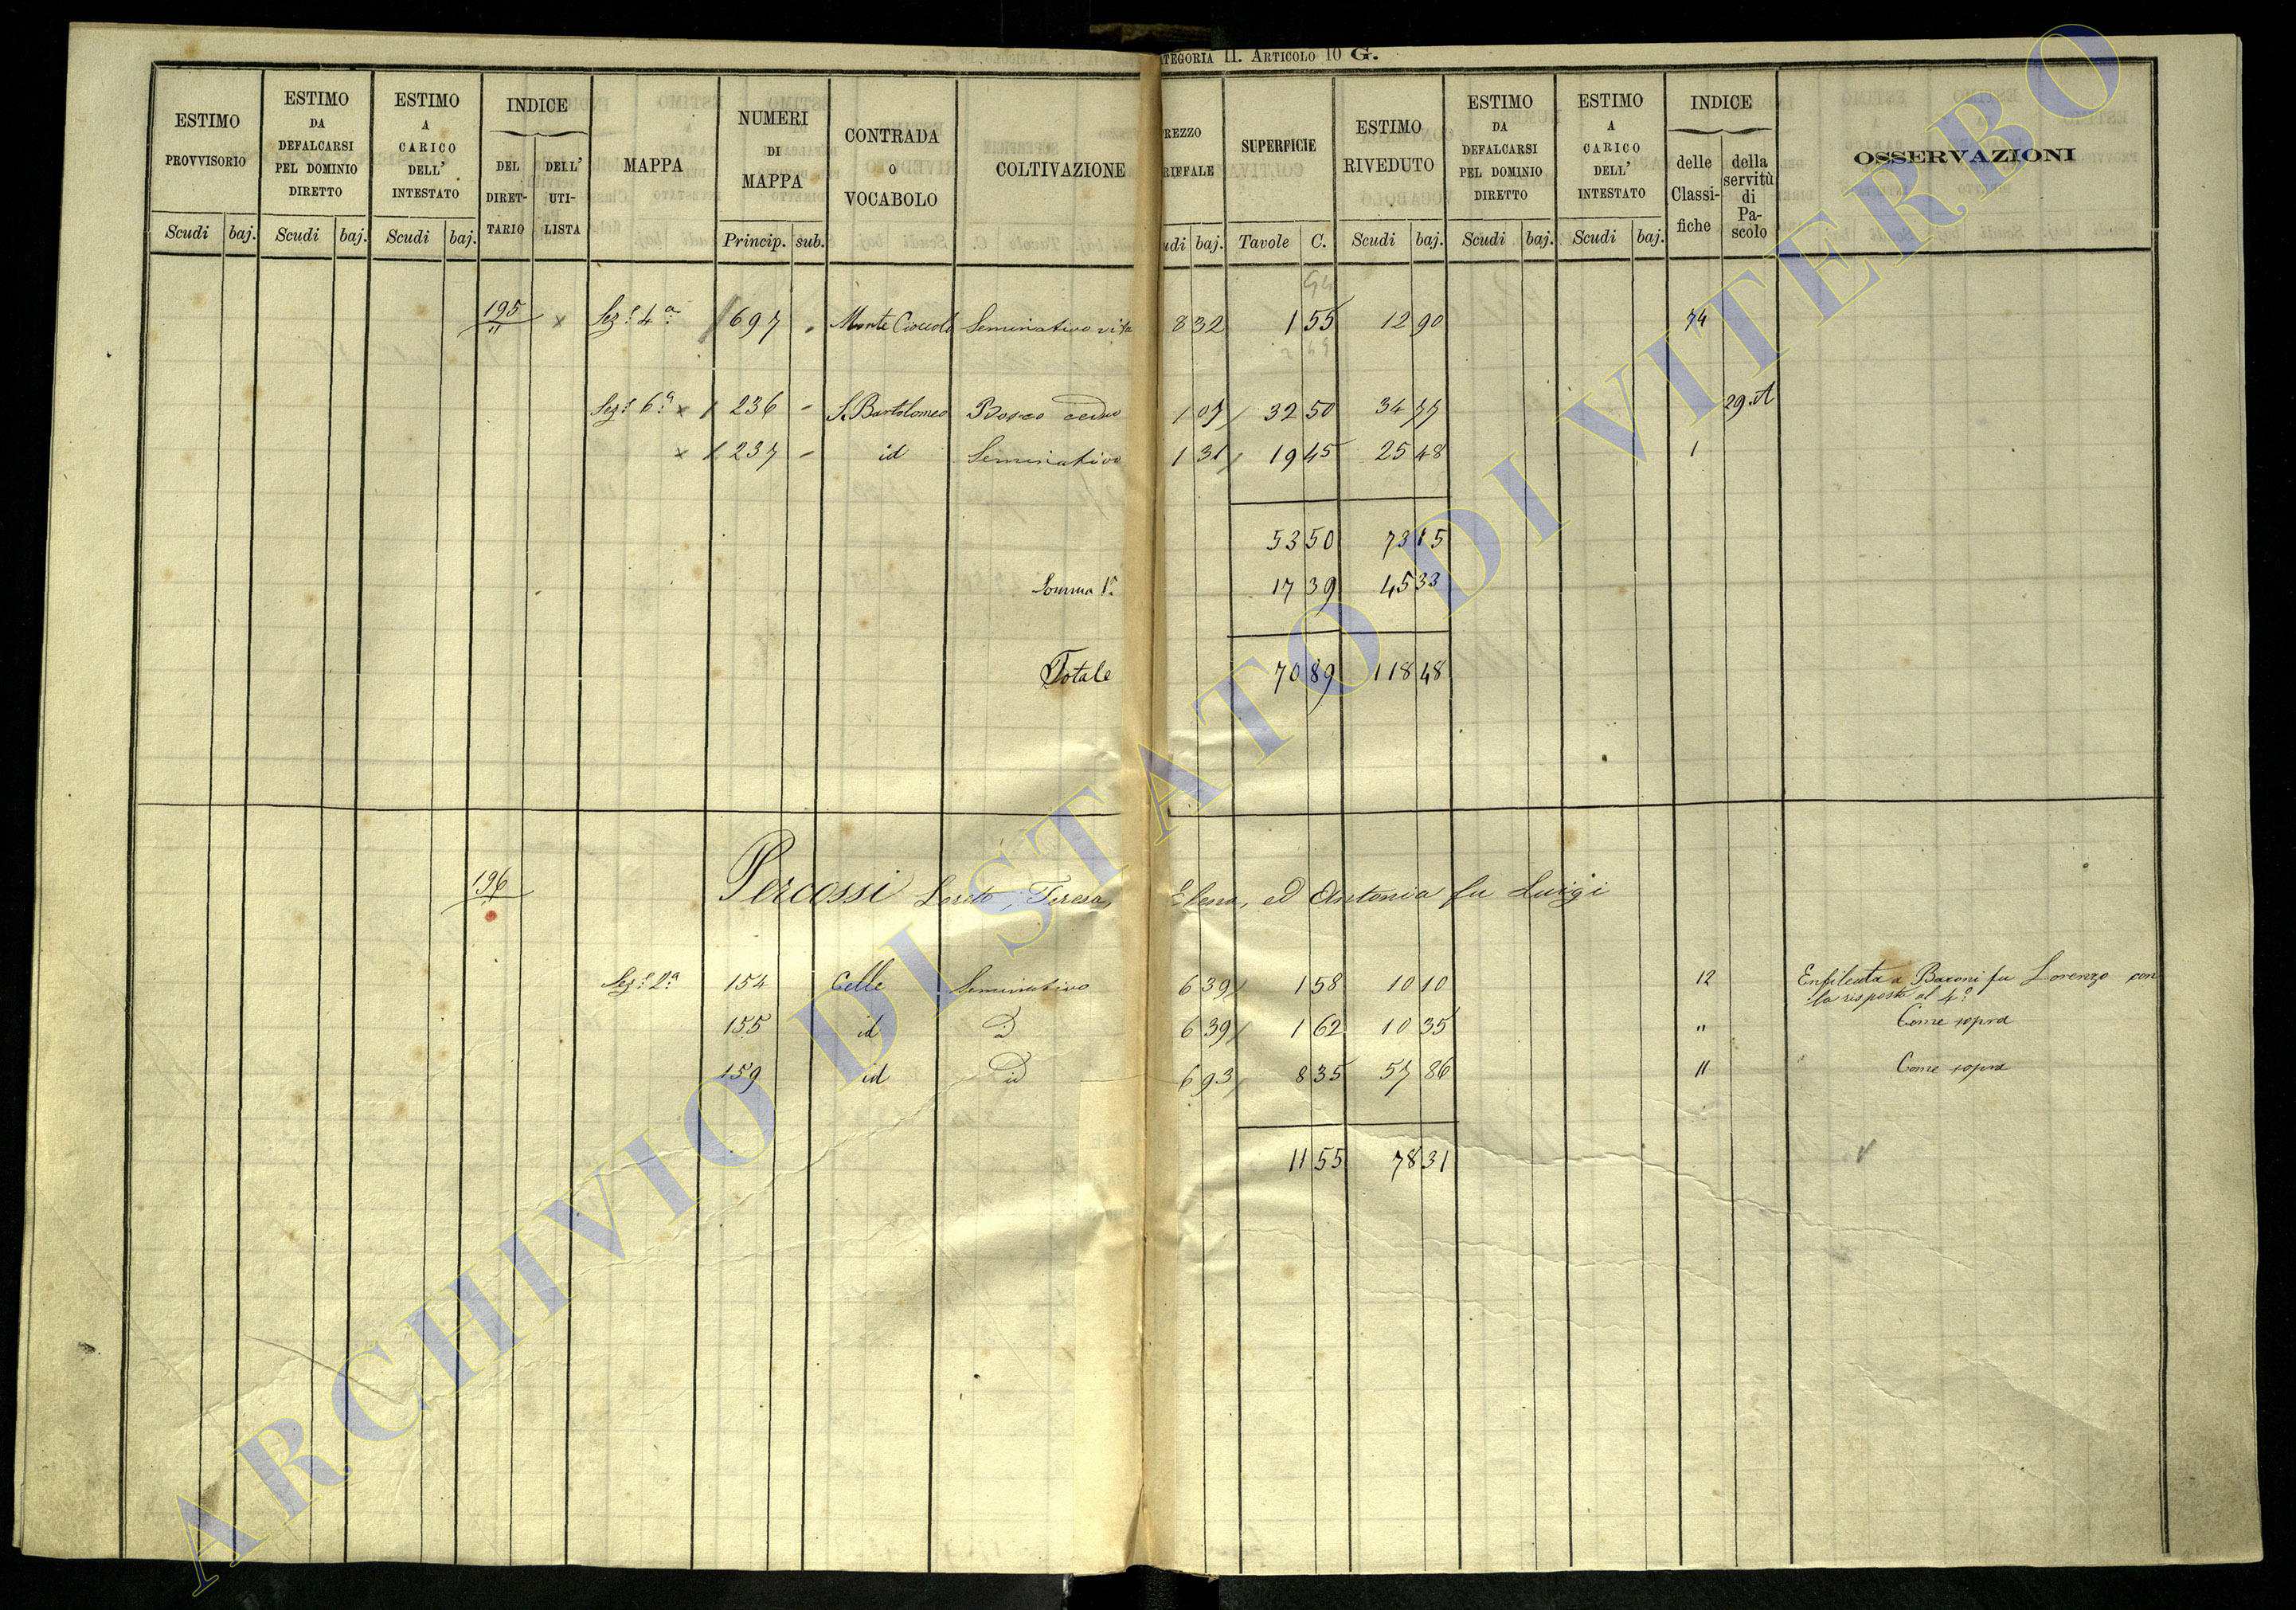 ATEGORIA II. ARTICOLO 10 G.
ESTIMO PROVVISORIO Scudi baj.
ESTIMO DA DEFALCARSI PEL DOMINIO DIRETTO Scudi baj.
ESTIMO A CARICO DELL' INTESTATO Scudi baj.
INDICE DEL DIRET-TARIO DELL' UTI-LISTA
MAPPA
NUMERI DI MAPPA Princip. sub.
CONTRADA O VOCABOLO
COLTIVAZIONE
REZZO RIFFALE udi baj.
SUPERFICIE Tavole C.
ESTIMO RIVEDUTO Scudi baj.
ESTIMO DA DEFALCARSI PEL DOMINIO DIRETTO Scudi baj.
ESTIMO A CARICO DELL' INTESTATO Scudi baj.
INDICE delle Classi-fiche della servitù di Pa-scolo
OSSERVAZIONI
195 " x Sez.e 4a 697 Monte Cioccolo Seminativo vita 8 32 1 55 12 90 74
Sez.e 6a x 236 - S. Bartolomeo Bosco ceduo 1 07 32 50 34 77 29. A
x 237 - id Seminativo 1 31 19 45 25 48 1
53 50 73 15
Somma 1a 17 39 45 33
Totale 70 89 118 48
196 Percossi Loreto, Teresa, Elena, ed Antonia fu Luigi
Sez.e 2a 154 Celle Seminativo 6 39 1 58 10 10 12 Enfiteuta a Baroni fu Lorenzo con
la risposta al 4o
155 id D 6 39 1 62 10 35 " Come sopra
159 id id 6 93 8 35 57 86 " Come sopra
11 55 78 31
ARCHIVIO DI STATO DI VITERBO